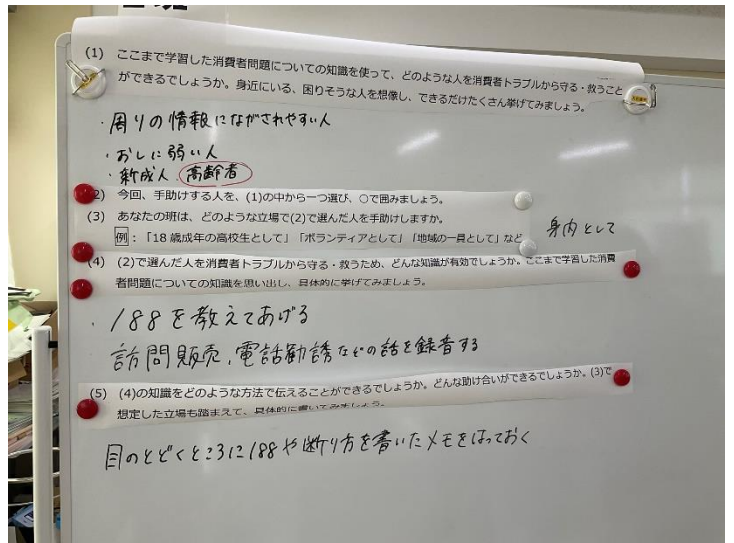 (1) ここまで学習した消費者問題についての知識を使って、どのような人を消費者トラブルから守る・救うこと
ができるでしょうか。身近にいる、困りそうな人を想像し、できるだけたくさん挙げてみましょう。
・周りの情報にながされやすい人
・おしに弱い人
・新成人 高齢者
2) 今回、手助けする人を、(1)の中から一つ選び、○で囲みましょう。
(3) あなたの班は、どのような立場で(2)で選んだ人を手助けしますか。
例:「18歳成年の高校生として」「ボランティアとして」「地域の一員として」など
身内として
(4) (2)で選んだ人を消費者トラブルから守る・救うため、どんな知識が有効でしょうか。ここまで学習した消費
者問題についての知識を思い出し、具体的に挙げてみましょう。
・188を教えてあげる
訪問販売、電話勧誘などの話を録音する
(5) (4)の知識をどのような方法で伝えることができるでしょうか。どんな助け合いができるでしょうか。(3)で
想定した立場も踏まえて、具体的に書いてみましょう。
目のとどくところに188や断り方を書いたメモをはっておく